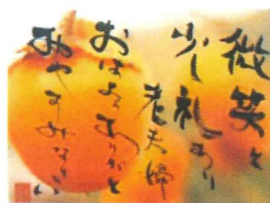 微笑と
少し礼あり
老夫婦
おはようありがと
おやすみなさい